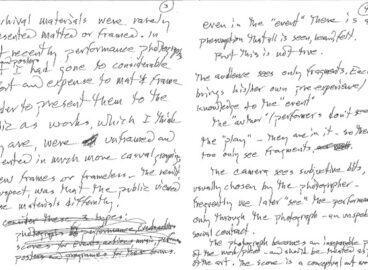 3
chival materials were rarely
esented matted or framed. In
t recently performance photographs
and posters
I had gone to considerable
and expense to mat & frame
der to present them to the
lic as works, which I think
y are, were unframed and
ented in much more casual
ew frames or frameless. The result
spect was that the public viewed
e materials differently.
consider these 3 types:
photographs of performance
scores for events
posters and programs for these
4
even in the "event" there is a
presumption that all is seen, heard, felt.
But this is not true.
The audience sees only fragments. Each
brings his/her own pre experience/
knowledge to the "event"
the "author"/performers don't see
the "play" - they are in it - so they
too only see fragments,
The camera sees subjective bits,
usually chosen by the photographer -
frequently we later "see" the performance
only through the photograph - an unspoken
social contract.
The photograph becomes an inseparable part
of the work/piece - and should be treated as
of the art. The score is a conceptual art work